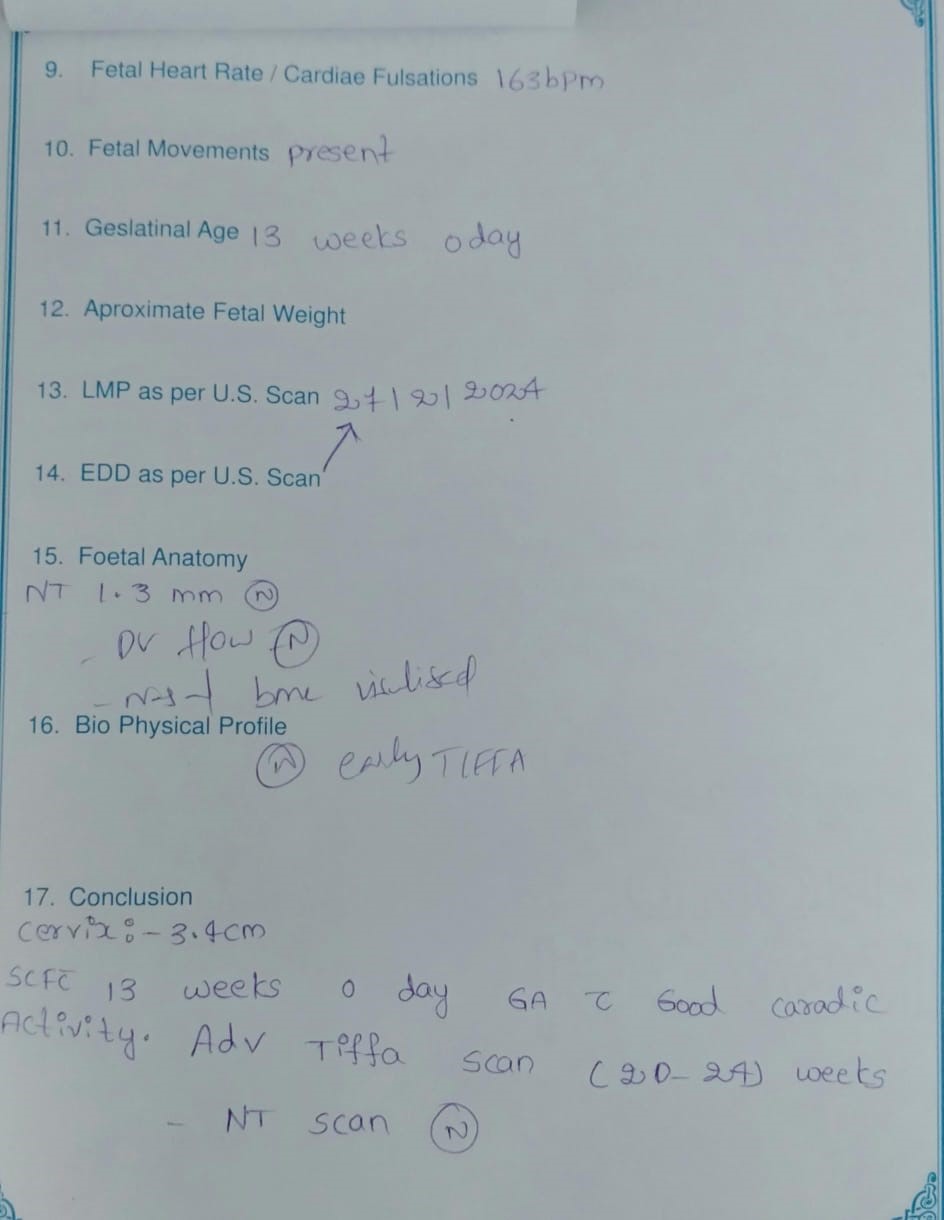 9. Fetal Heart Rate / Cardiae Fulsations 163bpm
10. Fetal Movements present
11. Geslatinal Age 13 weeks 0 day
12. Aproximate Fetal Weight
13. LMP as per U.S. Scan 27/2/2024
14. EDD as per U.S. Scan
15. Foetal Anatomy
NT 1.3 mm Ⓝ
- DV flow Ⓝ
- bone
16. Bio Physical Profile
Ⓝ early TIFFA
17. Conclusion
Cervix:- 3.4cm
SCFC 13 weeks 0 day GA c̄ Good caradic
Activity. Adv Tiffa scan (20-24) weeks
- NT scan Ⓝ